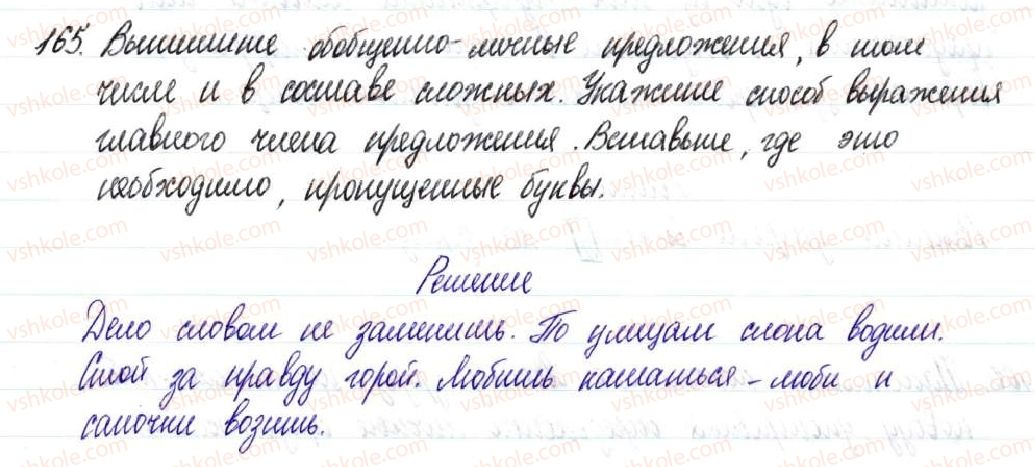 165. Выпишите обобщенно-личные предложения, в том
числе и в составе сложных. Укажите способ выражения
главного члена предложения. Вставьте, где это
необходимо, пропущенные буквы.
Решение
Дело словом не заменишь. По улицам слона водили.
Стой за правду горой. Любишь кататься - люби и
саночки возить.
vshkole.com